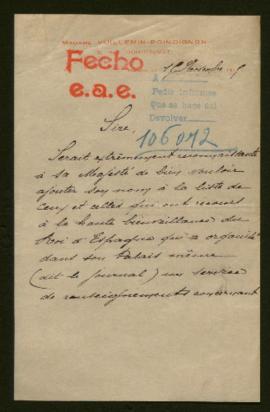 MADAME VUILLEMIN-POINDIGNON
Fecho
e.a.e.
A
Pedir informes
Que se hace así
Devolver
106042
Sire,
Serait extrêmement reconnaissante
à sa Majesté de bien vouloir
ajouter son nom à la liste de
ceux et celles qui ont recours
à la haute bienveillance du
Roi d'Espagne qui a organisé
dans son Palais même
(dit le journal) un service
de renseignements concernant